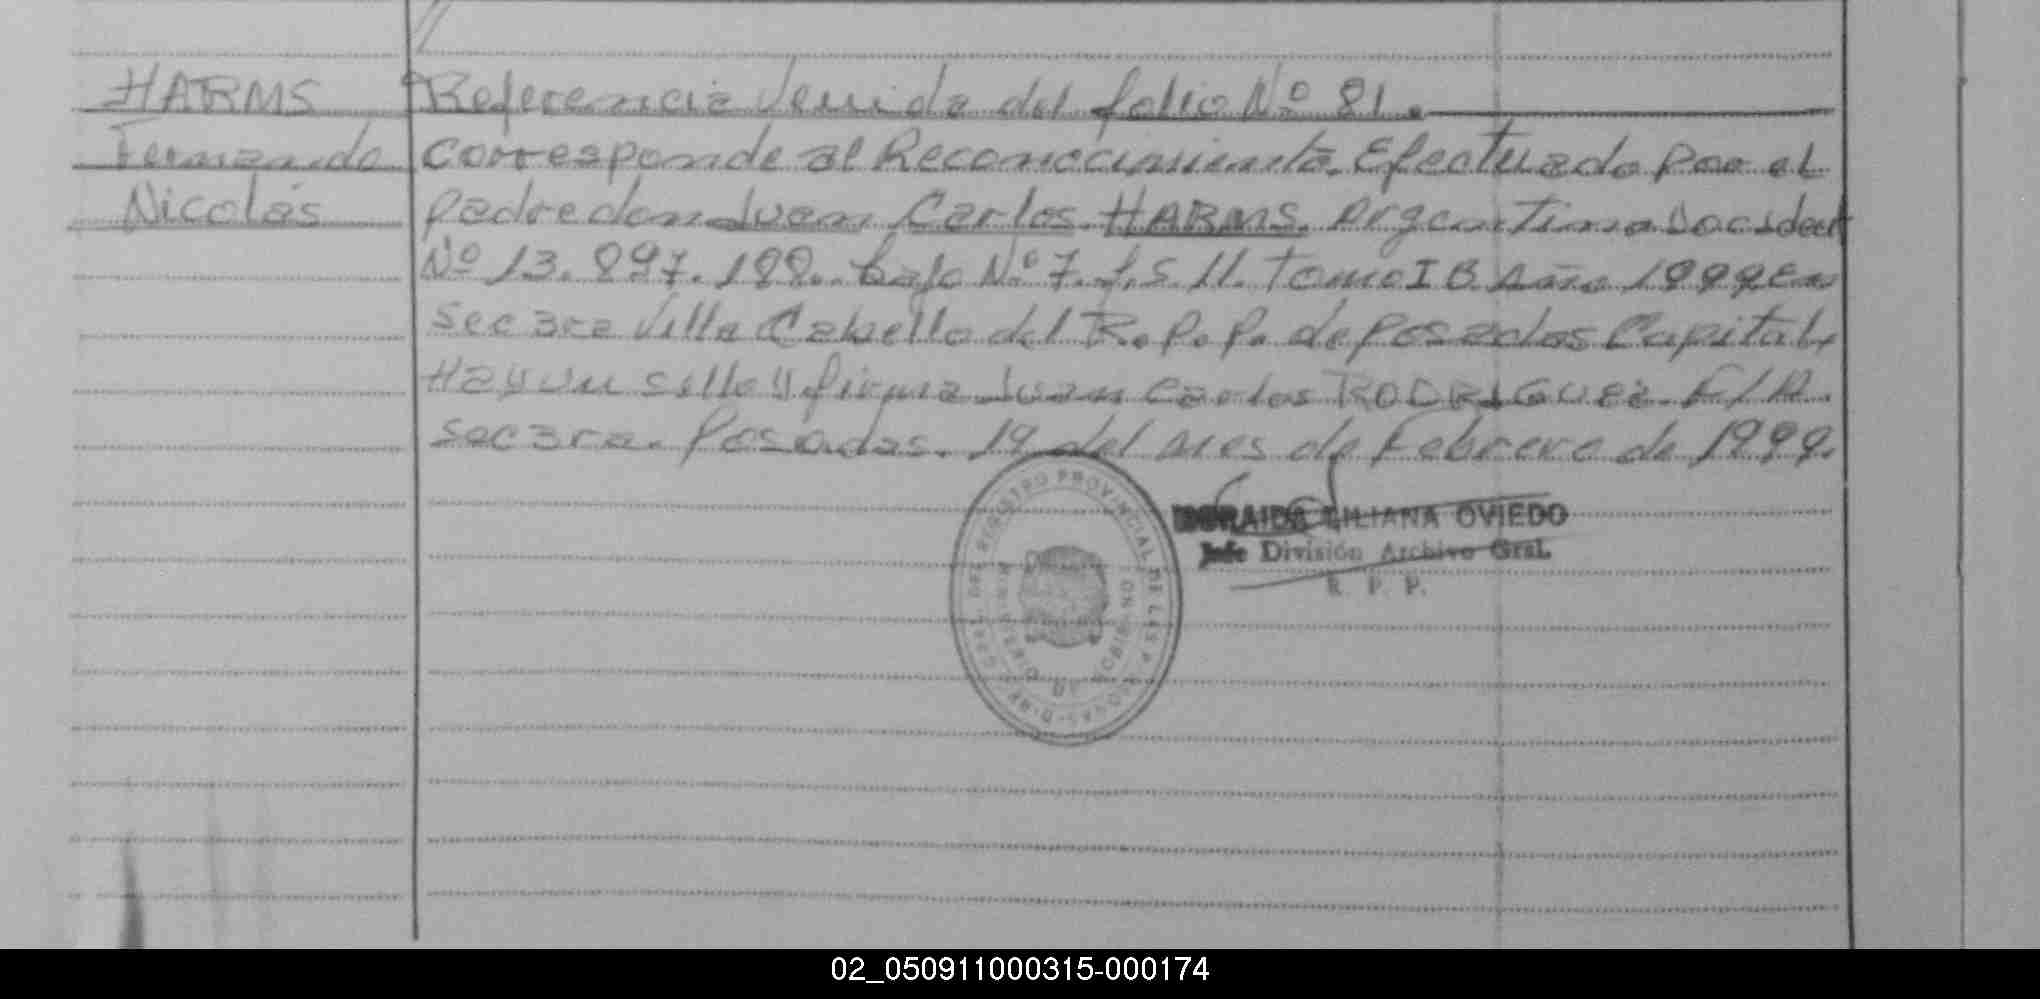 HARMS
Fernando
Nicolás
Referencia Venida del folio Nº 81.
Corresponde al Reconocimiento. Efectuado por el
padre don Juan Carlos HARMS. Argentino Doc. ident
Nº 13.897.188. bajo Nº 7. f.s 11. Tomo I B Año 1999 En
sec 3ra Villa Cabello del R.P.P. de Posadas Capital.
Hay un sello y firma Juan Carlos RODRIGUEZ. E/A.
sec 3ra. Posadas. 19 del mes de Febrero de 1999.
LILIANA OVIEDO
Jefe División Archivo Gral.
R. P. P.
REGISTRO PROVINCIAL DE LAS PERSONAS - DIREC. GRAL. DEL
MINISTERIO DE GOBIERNO
02_050911000315-000174